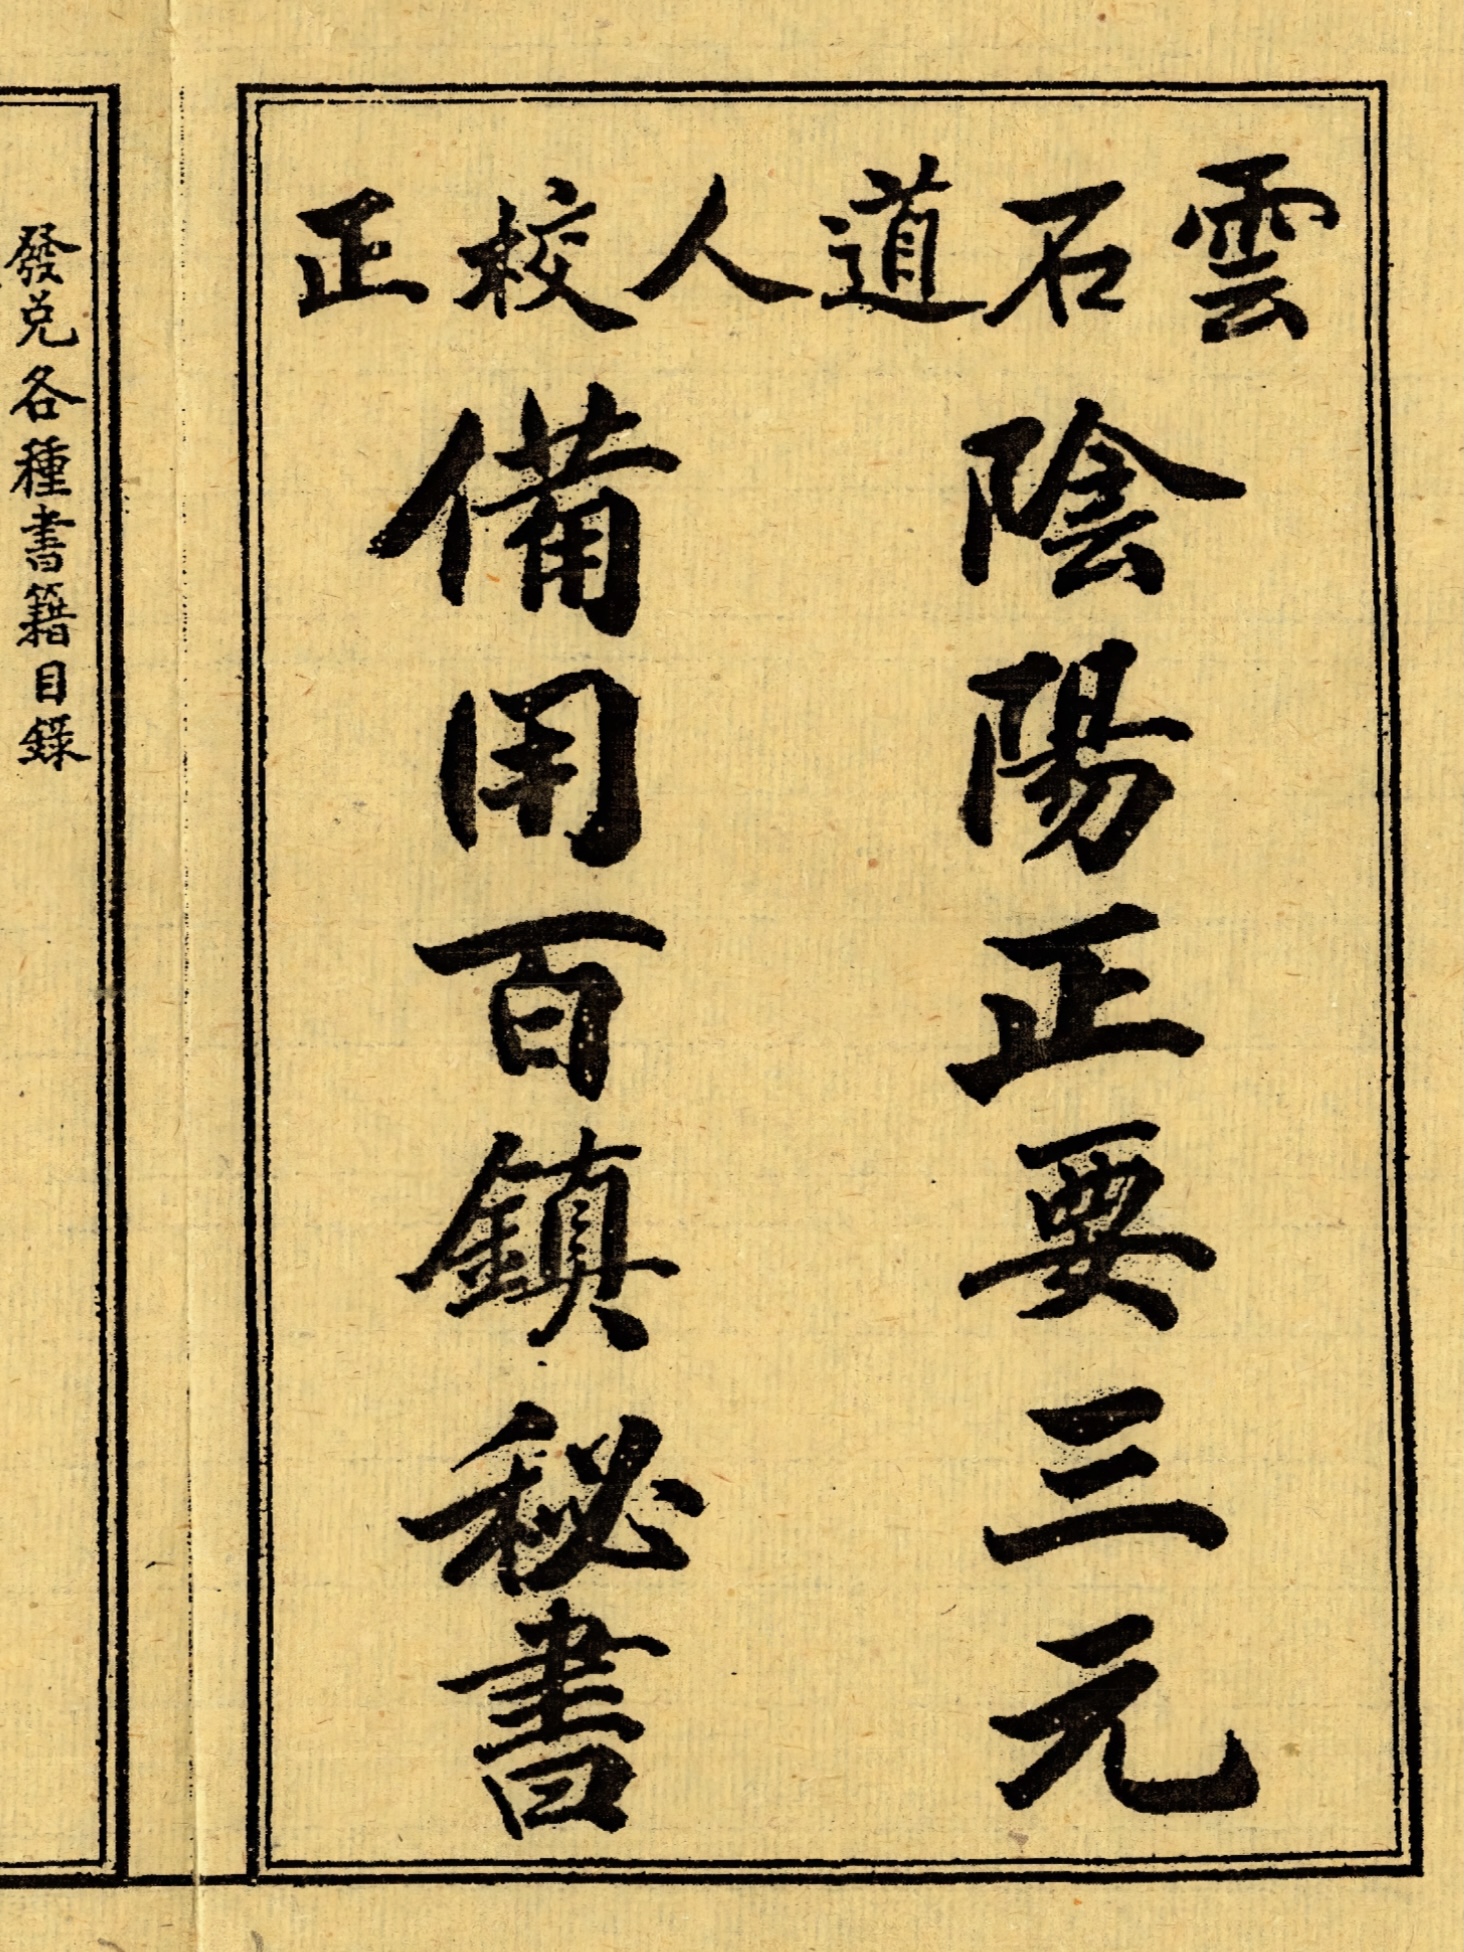 雲石道人校正
陰陽正要三元
備用百鎮秘書
發兌各種書籍目錄